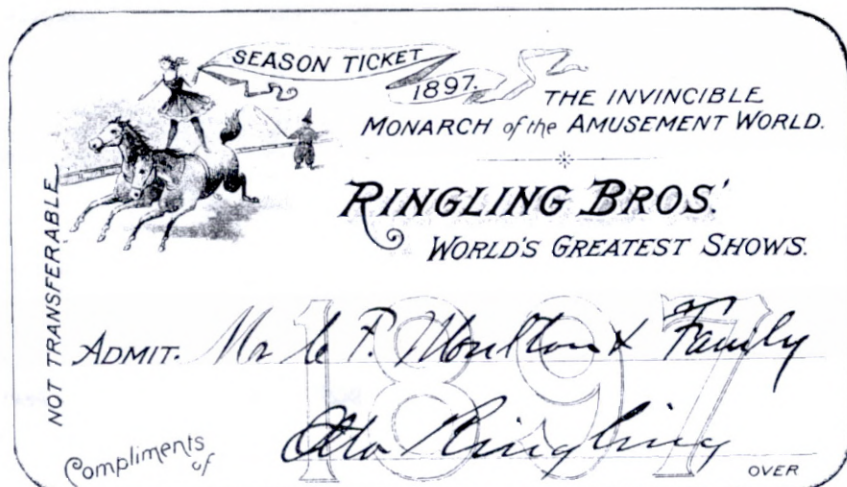 SEASON TICKET
1897.
THE INVINCIBLE
MONARCH of the AMUSEMENT WORLD.
RINGLING BROS.'
WORLD'S GREATEST SHOWS.
NOT TRANSFERABLE
1897
ADMIT. Mr C P. Moulton & Family
Compliments of Otto Ringling
OVER